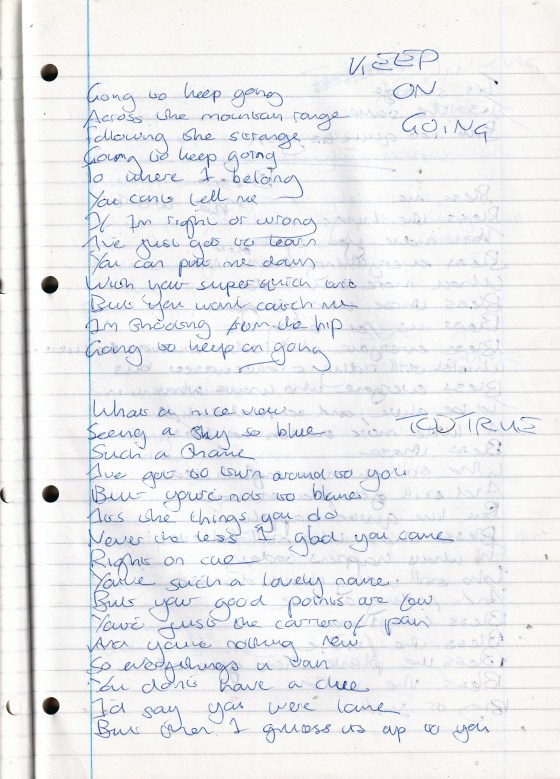 KEEP
ON
GOING
Going to keep going
Across the mountain range
Following the strange
Going to keep going
To where I belong
You can't tell me
If Im right or wrong
I've just got to learn
You can put me down
With your super quick wit
But you wont catch me
Im shooting from the hip
Going to keep on going
TOO TRUE
Whats a nice view
Seeing a sky so blue
Such a shame
I've got to turn around to you
But you're not to blame
Its the things you do
Never the less I glad you came
Right on cue
You've such a lovely name
But your good points are few
You're just the carrier of pain
And you're nothing new
So everythings a
You don't have a clue
I'd say you were lame
But then I guess its up to you